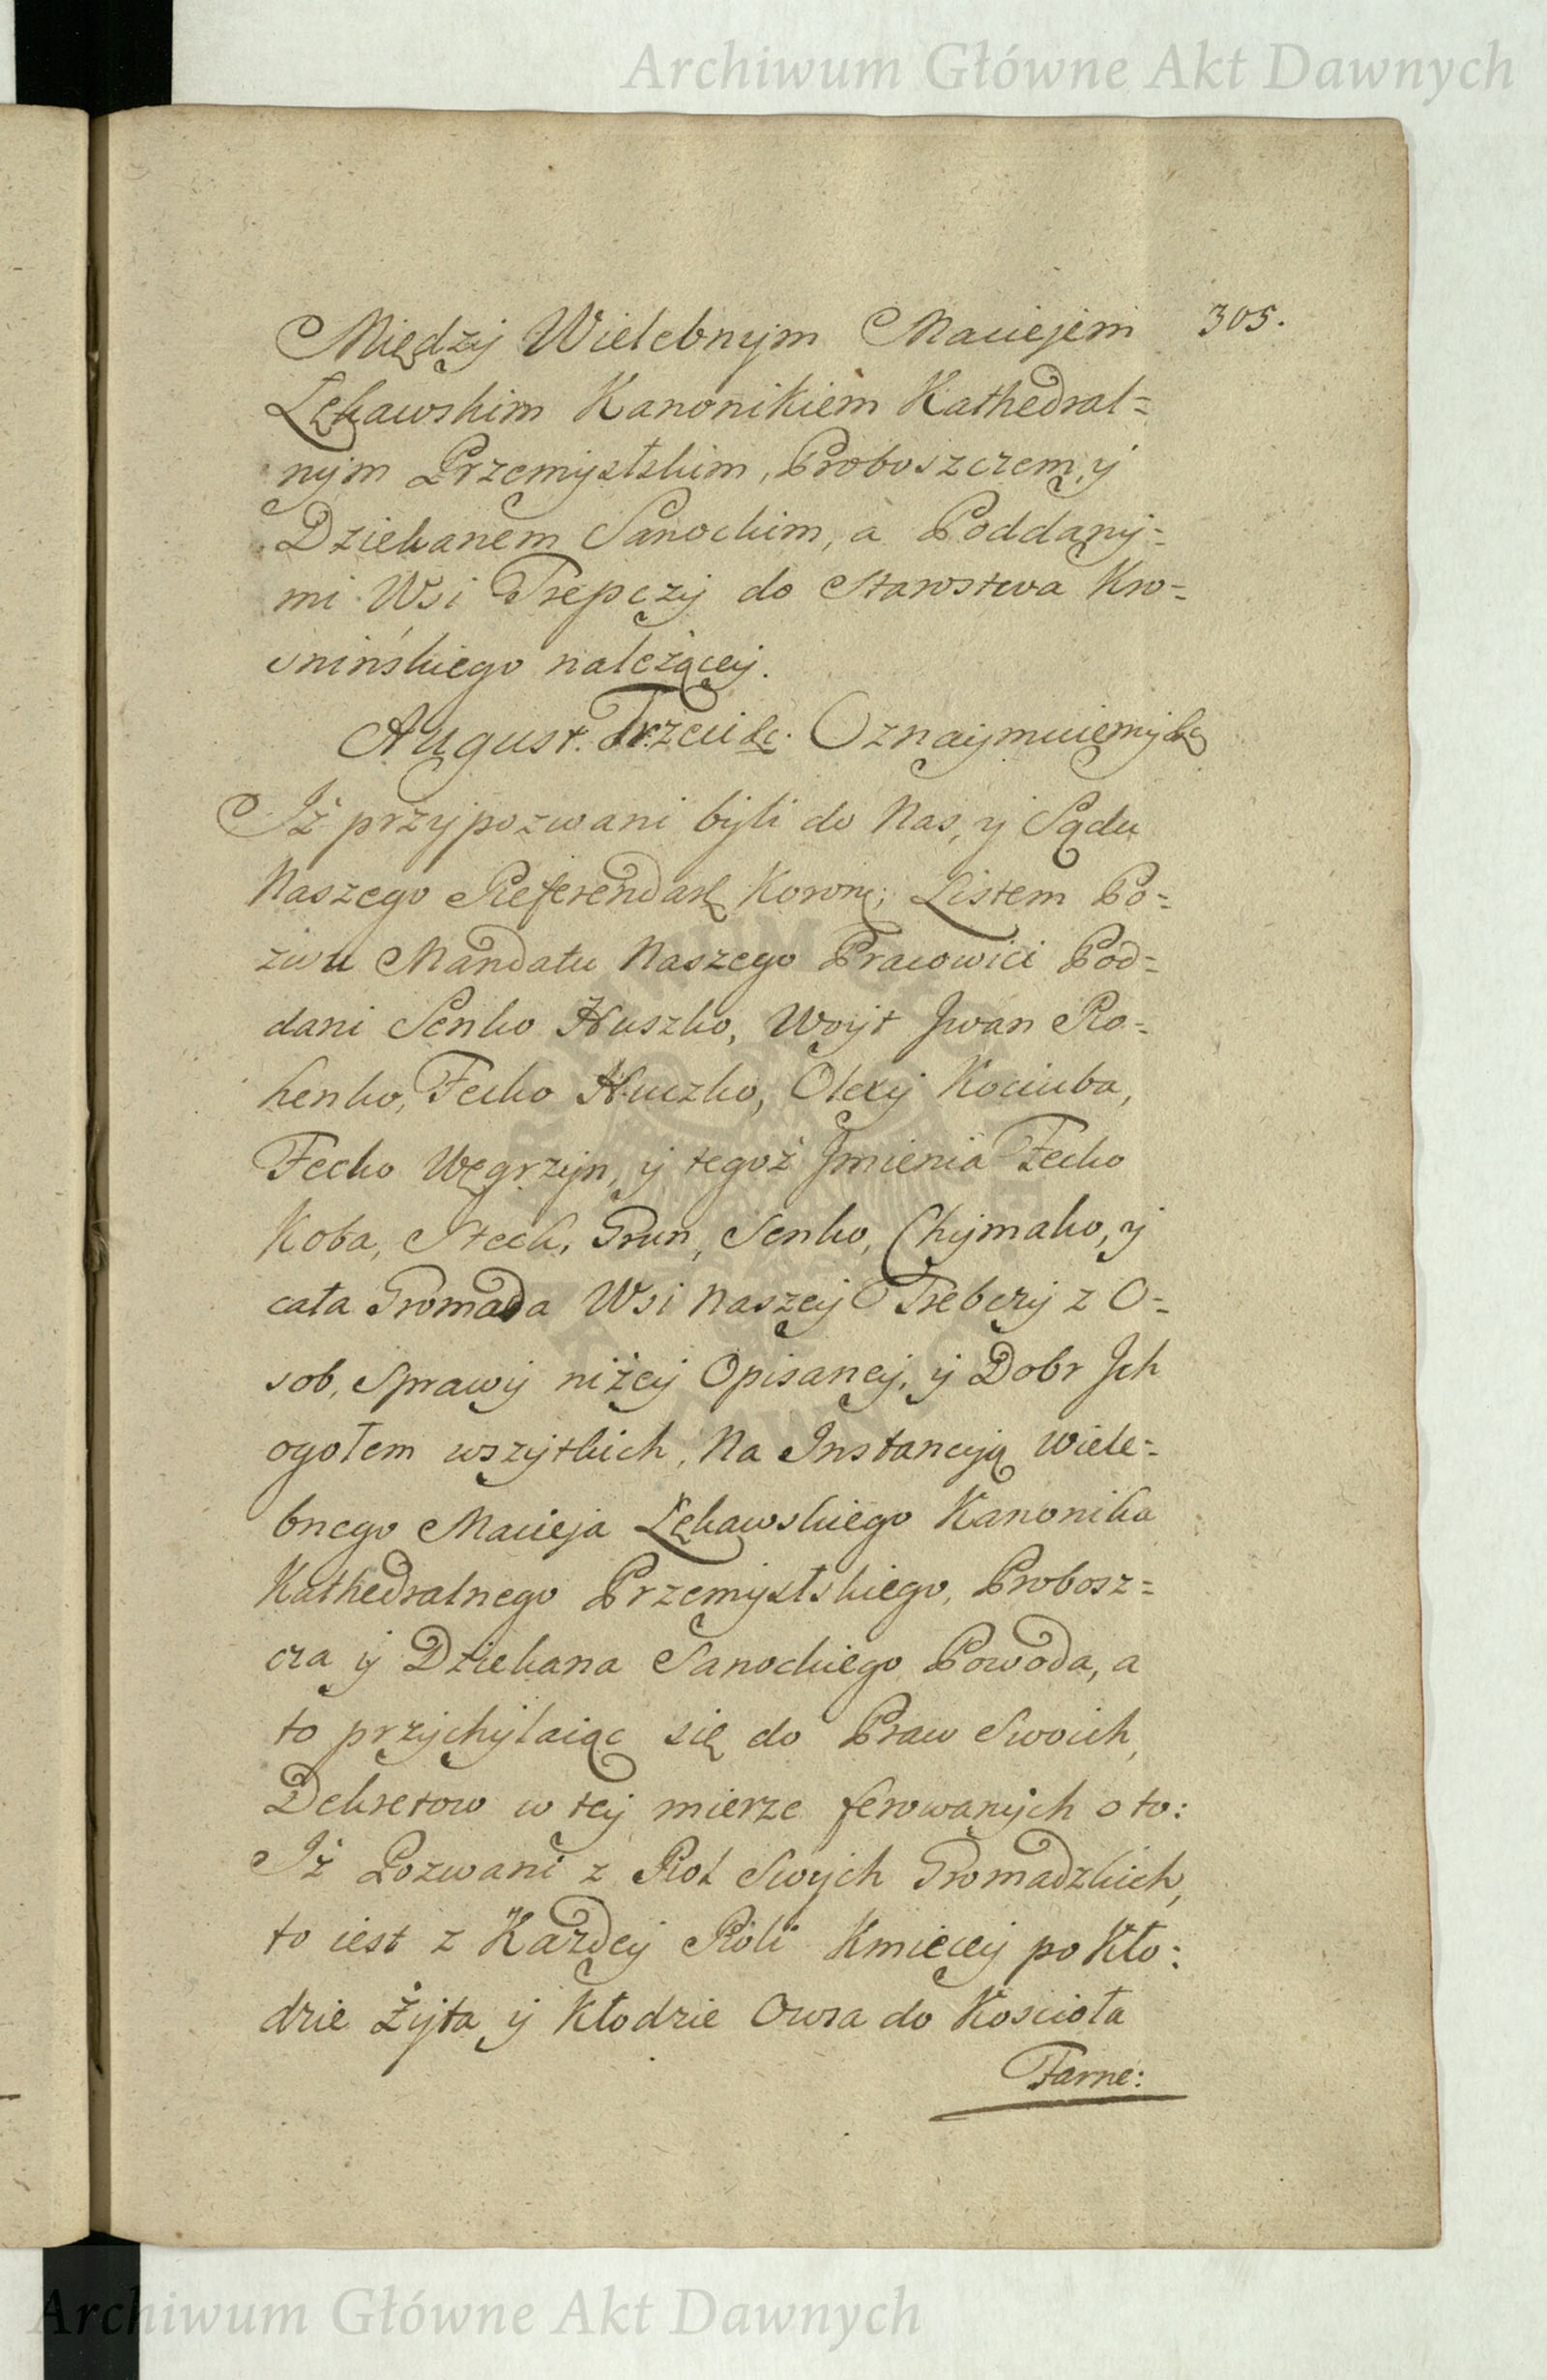 Archiwum Główne Akt Dawnych
305.
Między Wielebnym Maciejem
Lękawskim Kanonikiem Kathedral=
nym Przemyślskim, Proboszczem, y
Dziekanem Sanockim, à Poddany=
mi Wsi Trepczy do Starostwa Kro=
snińskiego należącey.
August Trzeci &c. Oznaymuiemy &c
Iż przypozwani byli do Nas, y Sądu
Naszego Referendars Koronn; Listem Po=
zwu Mandatu Naszego Pracowici Pod=
dani Senko Huszko, Woyt Iwan Ro=
henko, Fecko Huczko, Olexy Kociuba,
Fecko Węgrzyn, y tegoż Imienia Fecko
Koba, Steck, Grun, Senko, Chymako, y
cała Gromada Wsi Naszey Trebczy z O=
sob, Sprawy niżey Opisaney, y Dobr Ich
ogołem wszytkich, Na Instancyją Wiele=
bnego Macieja Lękawskiego Kanonika
Kathedralnego Przemyślskiego, Probosz=
cza y Dziekana Sanockiego Powoda, a
to przychylaiąc się do Praw Swoich,
Dekretow w tey mierze ferowanych o to:
Iż Pozwani z Rol Swych Gromadzkich,
to iest z Każdey Roli Kmiecey po Kło:
dzie Żyta y Kłodzie Owsa do Kościoła
Farne:
Archiwum Główne Akt Dawnych